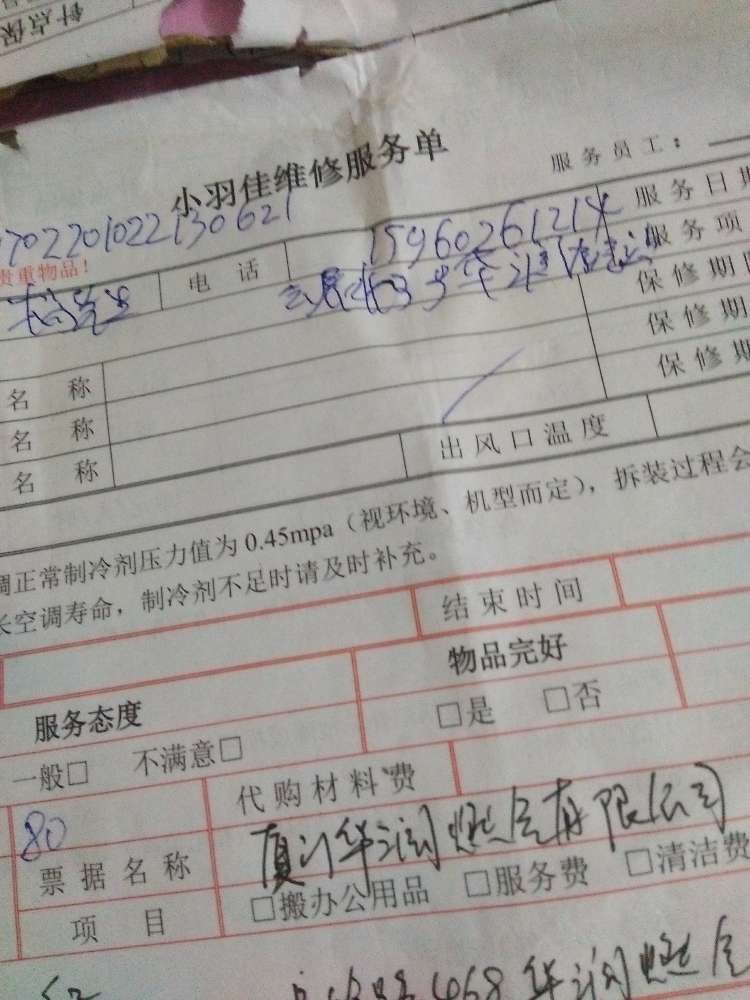 针点保
小羽佳维修服务单
服务员工：
702201022130621
15960261214
服务日期
贵重物品！
电话
服务项
保修期
名称
保修期
名称
保修期
名称
出风口温度
调正常制冷剂压力值为0.45mpa（视环境、机型而定），拆装过程会
长空调寿命，制冷剂不足时请及时补充。
结束时间
服务态度
物品完好
□是 □否
一般□ 不满意□
80
代购材料费
票据名称
厦门华润燃气有限公司
项目
□搬办公用品 □服务费 □清洁费
468华润燃气